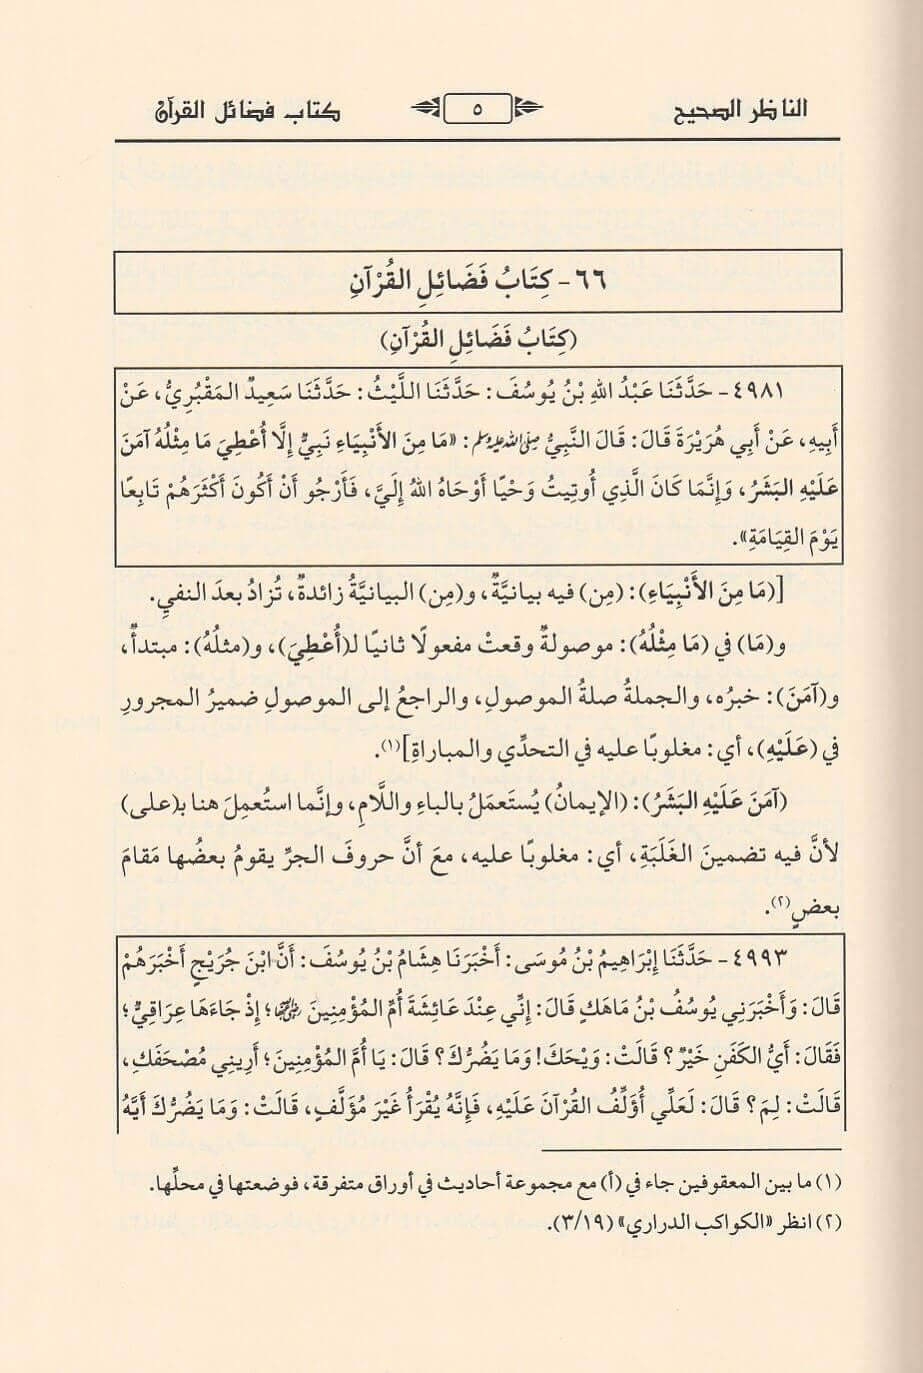 الناظر الصحيح
٥
كتاب فضائل القرآن
٦٦- كِتَابُ فَضَائِلِ القُرْآنِ
(كِتَابُ فَضَائِلِ القُرْآنِ)
٤٩٨١- حَدَّثَنَا عَبْدُ اللهِ بْنُ يُوسُفَ: حَدَّثَنَا اللَّيْثُ: حَدَّثَنَا سَعِيدٌ المَقْبُرِيُّ، عَنْ
أَبِيهِ، عَنْ أَبِي هُرَيْرَةَ قَالَ: قَالَ النَّبِيُّ ﷺ: «مَا مِنَ الأَنْبِيَاءِ نَبِيٌّ إِلَّا أُعْطِيَ مَا مِثْلُهُ آمَنَ
عَلَيْهِ البَشَرُ، وَإِنَّمَا كَانَ الَّذِي أُوتِيتُ وَحْيًا أَوْحَاهُ اللهُ إِلَيَّ، فَأَرْجُو أَنْ أَكُونَ أَكْثَرَهُمْ تَابِعًا
يَوْمَ القِيَامَةِ».
[(مَا مِنَ الأَنْبِيَاءِ): (مِن) فيه بيانيَّةٌ، و(مِن) البيانيَّةُ زائدةٌ، تُزادُ بعدَ النفيِ.
و(مَا) في (مَا مِثْلُهُ): موصولةٌ وقعتْ مفعولًا ثانيًا لـ(أُعْطِيَ)، و(مثلُهُ): مبتدأٌ،
و(آمَنَ): خبرُه، والجملةُ صلةُ الموصولِ، والراجعُ إلى الموصولِ ضميرُ المجرورِ
في (عَلَيْهِ)، أي: مغلوبًا عليه في التحدِّي والمباراةِ](١).
(آمَنَ عَلَيْهِ البَشَرُ): (الإيمانُ) يُستَعمَلُ بالباءِ واللَّامِ، وإنَّما استُعمِلَ هنا بـ(على)
لأنَّ فيه تضمينَ الغَلَبَةِ، أي: مغلوبًا عليه، معَ أنَّ حروفَ الجرِّ يقومُ بعضُها مَقامَ
بعضٍ(٢).
٤٩٩٣- حَدَّثَنَا إِبْرَاهِيمُ بْنُ مُوسَى: أَخْبَرَنَا هِشَامُ بْنُ يُوسُفَ: أَنَّ ابْنَ جُرَيْجٍ أَخْبَرَهُمْ
قَالَ: وَأَخْبَرَنِي يُوسُفُ بْنُ مَاهَكٍ قَالَ: إِنِّي عِنْدَ عَائِشَةَ أُمِّ المُؤْمِنِينَ رضي الله عنها؛ إِذْ جَاءَهَا عِرَاقِيٌّ؛
فَقَالَ: أَيُّ الكَفَنِ خَيْرٌ؟ قَالَتْ: وَيْحَكَ! وَمَا يَضُرُّكَ؟ قَالَ: يَا أُمَّ المُؤْمِنِينَ؛ أَرِينِي مُصْحَفَكِ،
قَالَتْ: لِمَ؟ قَالَ: لَعَلِّي أُؤَلِّفُ القُرْآنَ عَلَيْهِ، فَإِنَّهُ يُقْرَأُ غَيْرَ مُؤَلَّفٍ، قَالَتْ: وَمَا يَضُرُّكَ أَيَّهُ
(١) ما بين المعقوفين جاء في (أ) مع مجموعة أحاديث في أوراق متفرقة، فوضعتها في محلِّها.
(٢) انظر «الكواكب الدراري» (٣/١٩).